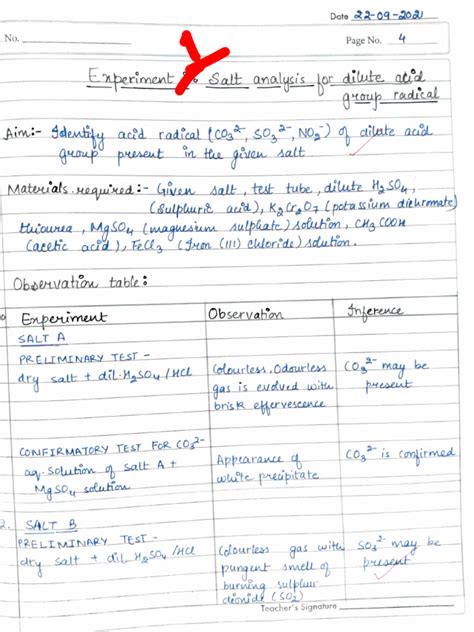 Date 22-09-2021
No.
Page No. 4
Experiment Salt analysis for dilute acid
group radical
Aim:- Identify acid radical (CO₃²⁻, SO₃²⁻, NO₂⁻) of dilute acid
group present in the given salt
Materials required:- Given salt, test tube, dilute H₂SO₄,
(Sulphuric acid), K₂Cr₂O₇ (potassium dichromate)
thiourea, MgSO₄ (magnesium sulphate) solution, CH₃COOH
(acetic acid), FeCl₃ (Iron (III) chloride) solution.
Observation table:
Experiment Observation Inference
SALT A
PRELIMINARY TEST -
dry salt + dil. H₂SO₄/HCl Colourless, Odourless CO₃²⁻ may be
gas is evolved with present
brisk effervescence
CONFIRMATORY TEST FOR CO₃²⁻
aq. solution of salt A + Appearance of CO₃²⁻ is confirmed
MgSO₄ solution white precipitate
2. SALT B
PRELIMINARY TEST -
dry salt + dil. H₂SO₄/HCl Colourless gas with SO₃²⁻ may be
pungent smell of present
burning sulphur
dioxide (SO₂)
Teacher's Signature